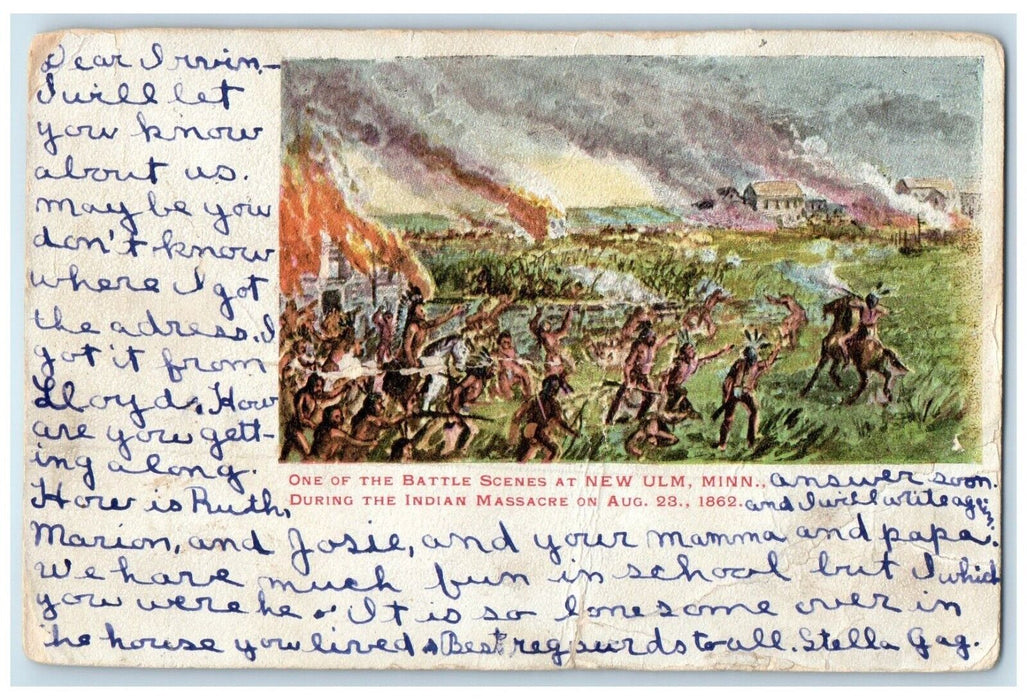 Dear Irvin,-
I will let
you know
about us.
may be you
don't know
where I got
the adress. I
got it from
Lloyd. How
are you gett-
ing along.
How is Ruth,
ONE OF THE BATTLE SCENES AT NEW ULM, MINN.,
DURING THE INDIAN MASSACRE ON AUG. 23., 1862.
answer soon.
and I will write again.
Marion, and Josie, and your mamma and papa.
We have much fun in school but I which
you were he. It is so lonesome over in
he house you lived. Best regaurds to all. Stella Gag.